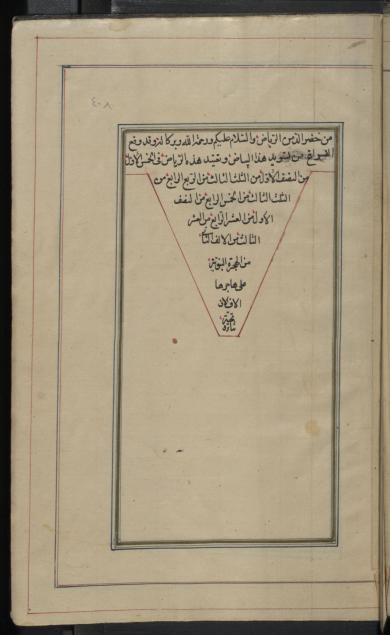 ٤٠٨
من خضر الدمن الرياض والسلام عليكم ورحمة الله وبركاته وقد وقع
الفراغ من تسويد هذا البياض وتقييد هذه الرياض في الخمس الاول
من النصف الاول من الثلث الثالث من الربع الرابع من
الثلث الثالث من الخمس الرابع من النصف
الاول من العشر الرابع من العشر
الثالث من الالف الثاني
من الهجرة النبوية
على هاجرها
الاف
تحية